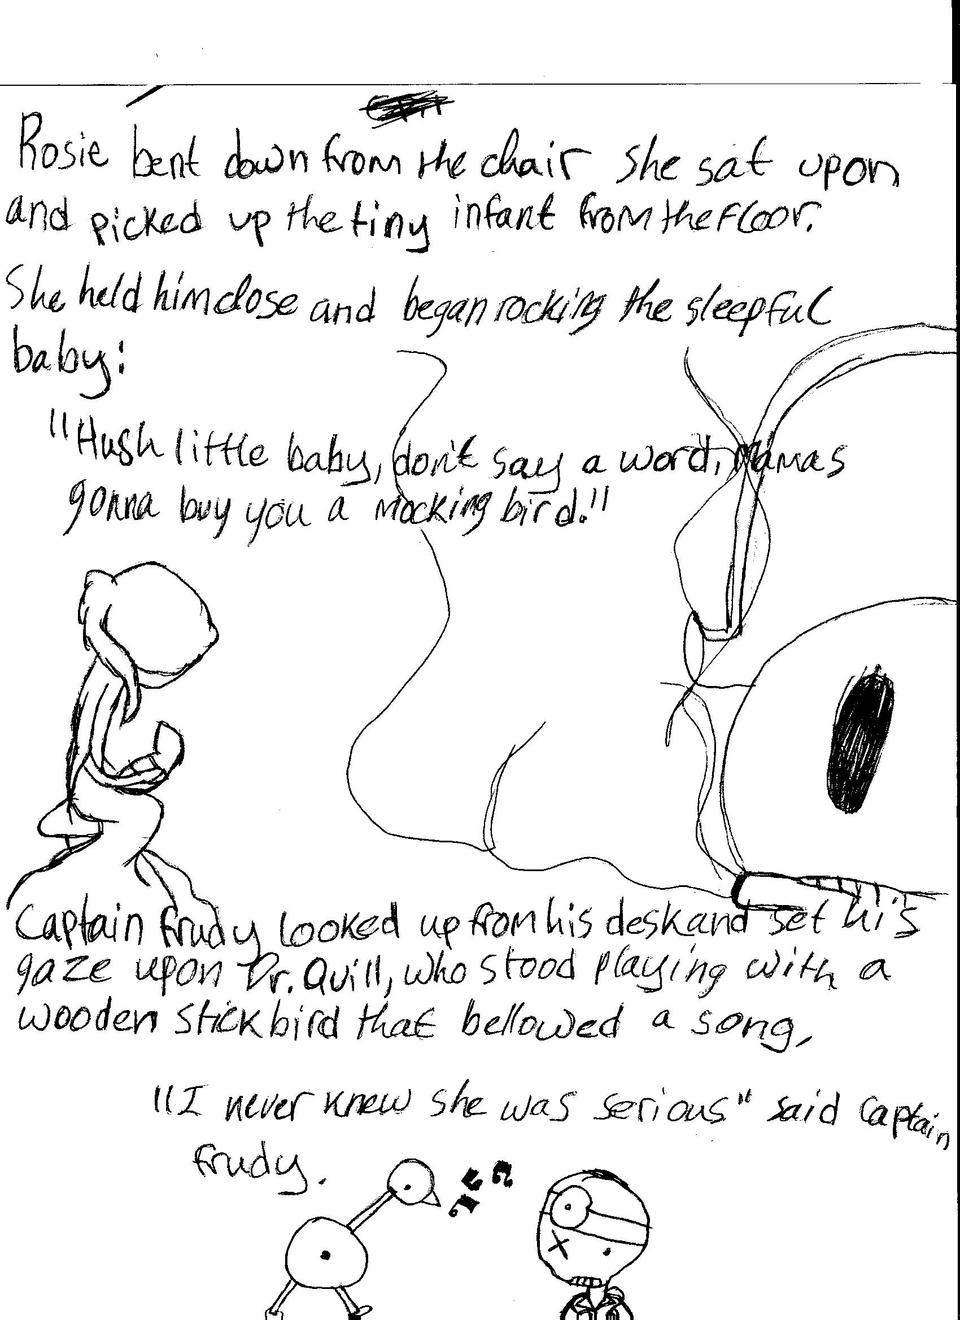 Rosie bent down from the chair she sat upon
and picked up the tiny infant from the floor.
She held him close and began rocking the sleepful
baby:
"Hush little baby, don't say a word, Mamas
gonna buy you a mocking bird."
Captain Frudy looked up from his desk and set his
gaze upon Dr. Quill, who stood playing with a
wooden stick bird that bellowed a song,
"I never knew she was serious" said Captain
Frudy.